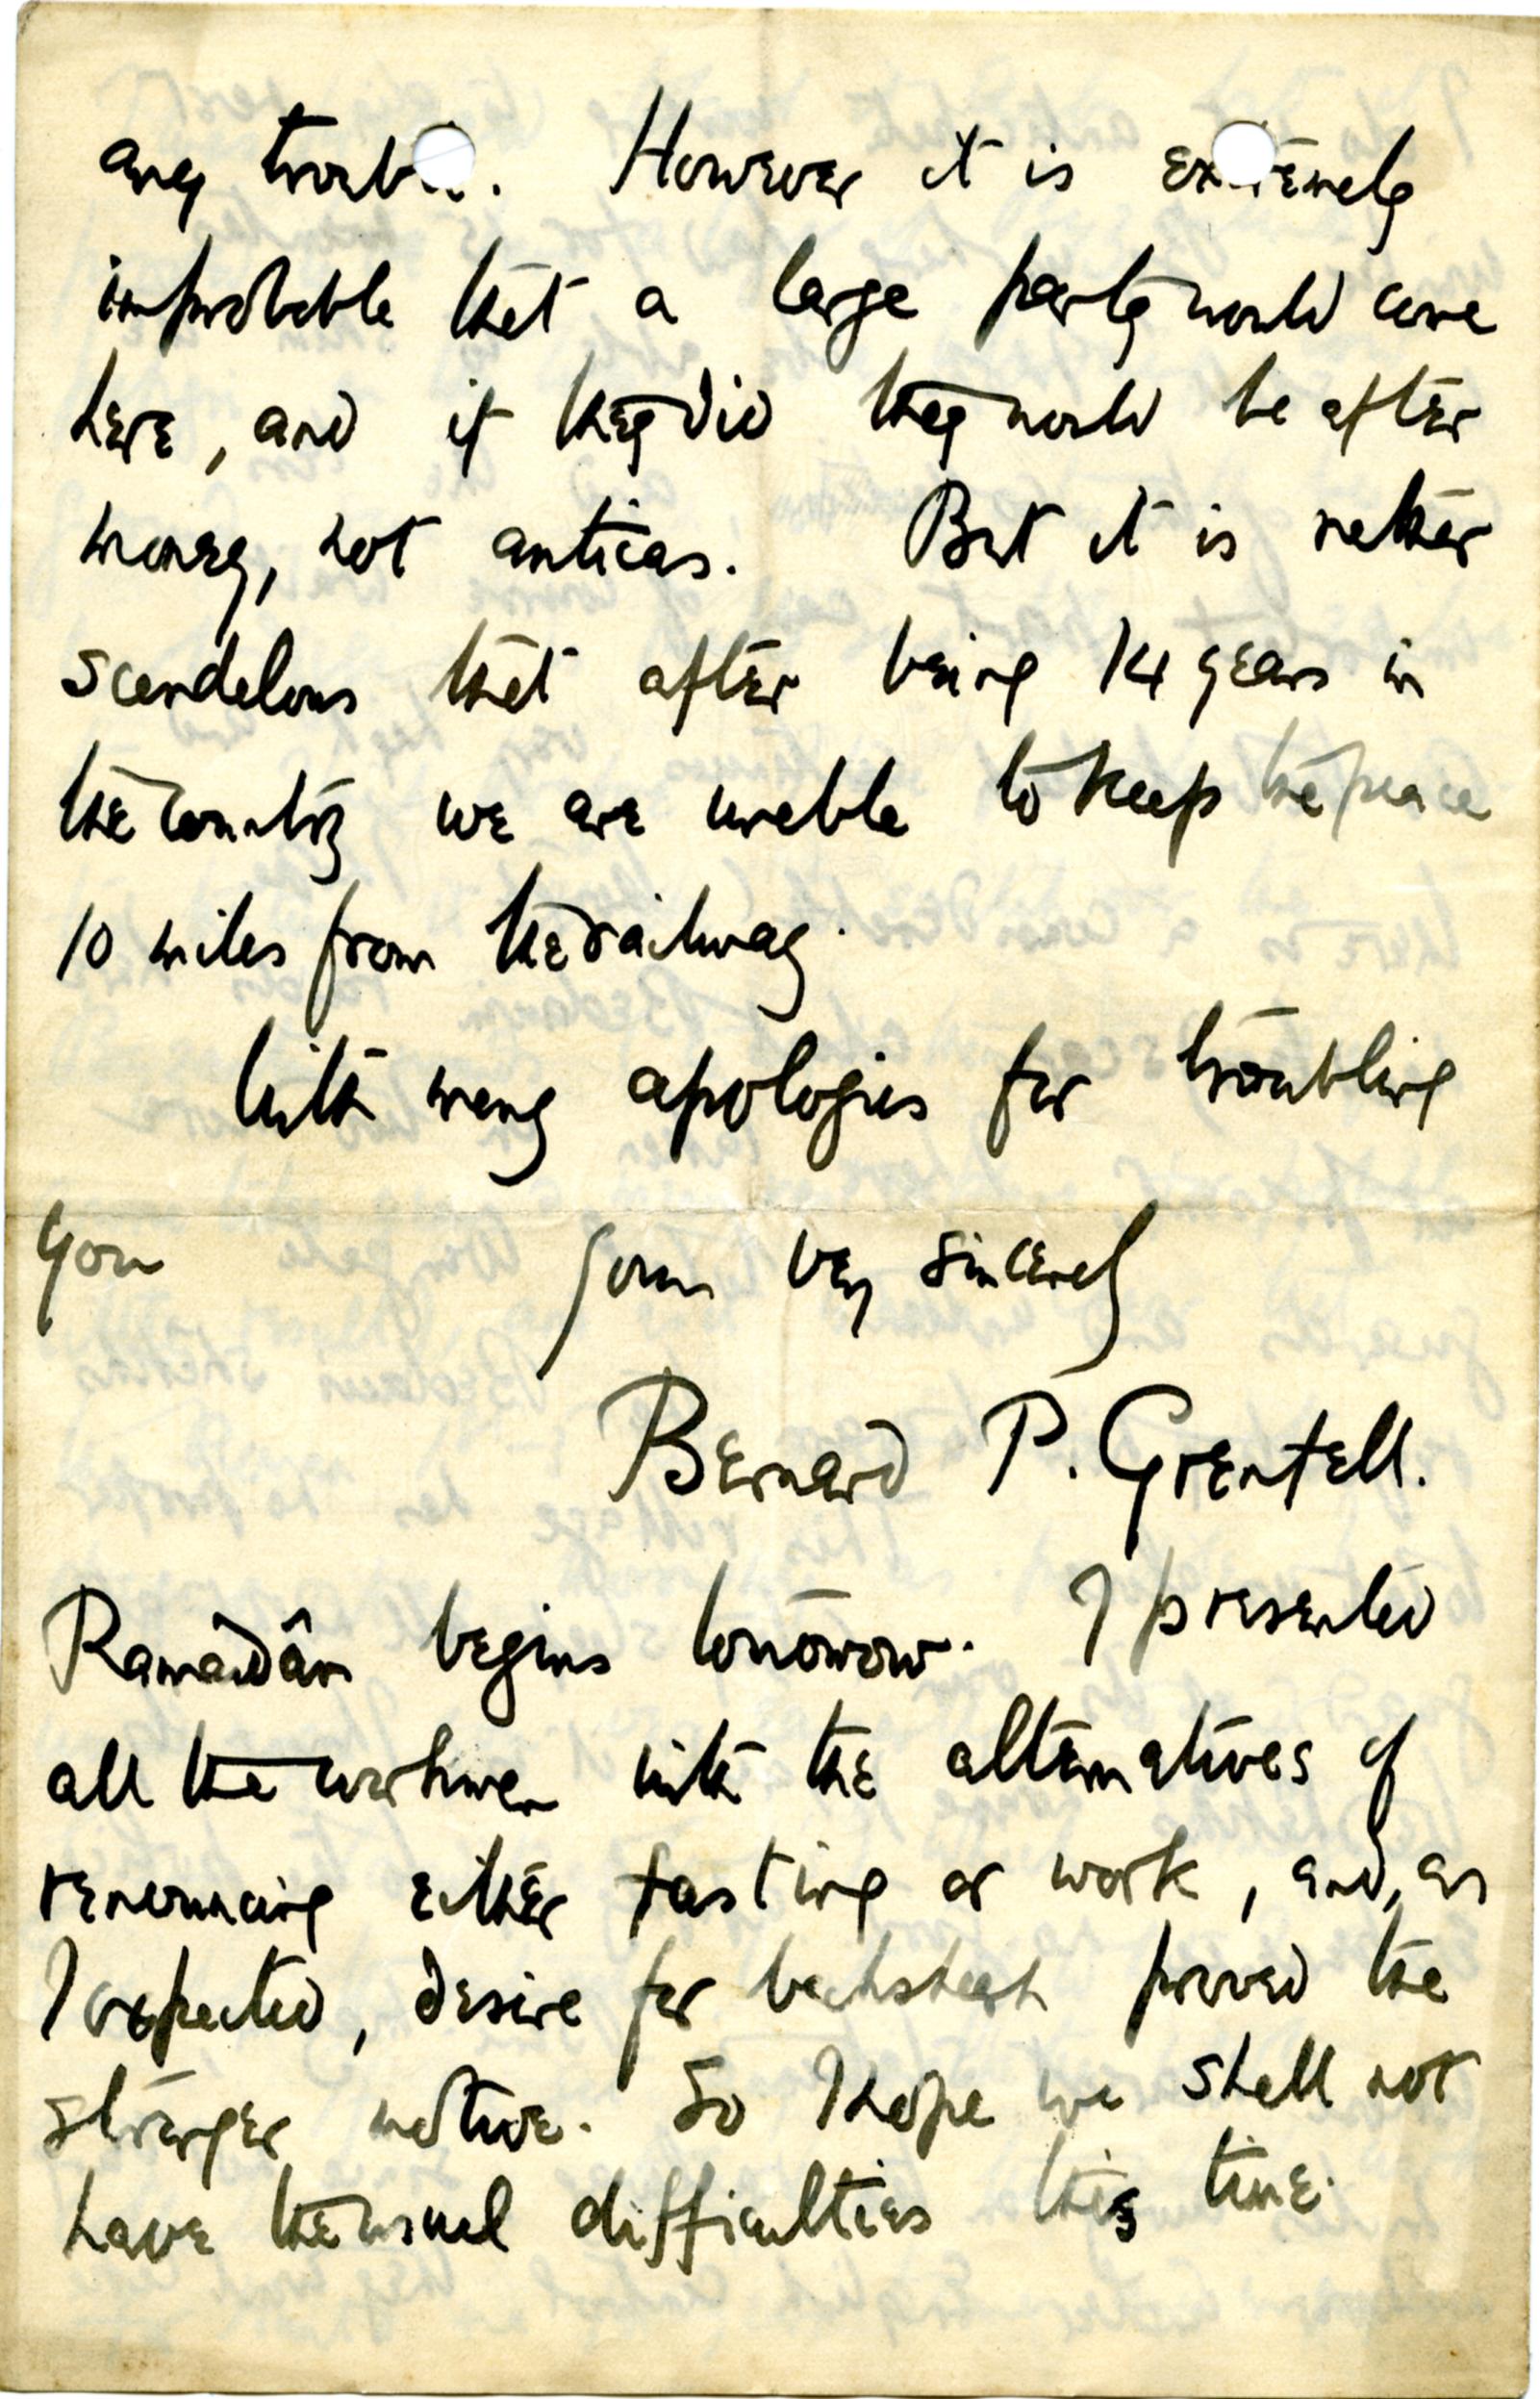 any trouble. However it is extremely
improbable that a large party would come
here, and if they did they would be after
money, not anticas. But it is rather
scandalous that after being 14 years in
the country we are unable to keep the peace
10 miles from the railway.
With many apologies for troubling
you yours very sincerely
Bernard P. Grenfell.
Ramadân begins tomorrow. I presented
all the workmen with the alternatives of
renouncing either fasting or work, and, as
I expected, desire for bakshish proved the
stronger motive. So I hope we shall not
have the usual difficulties this time.